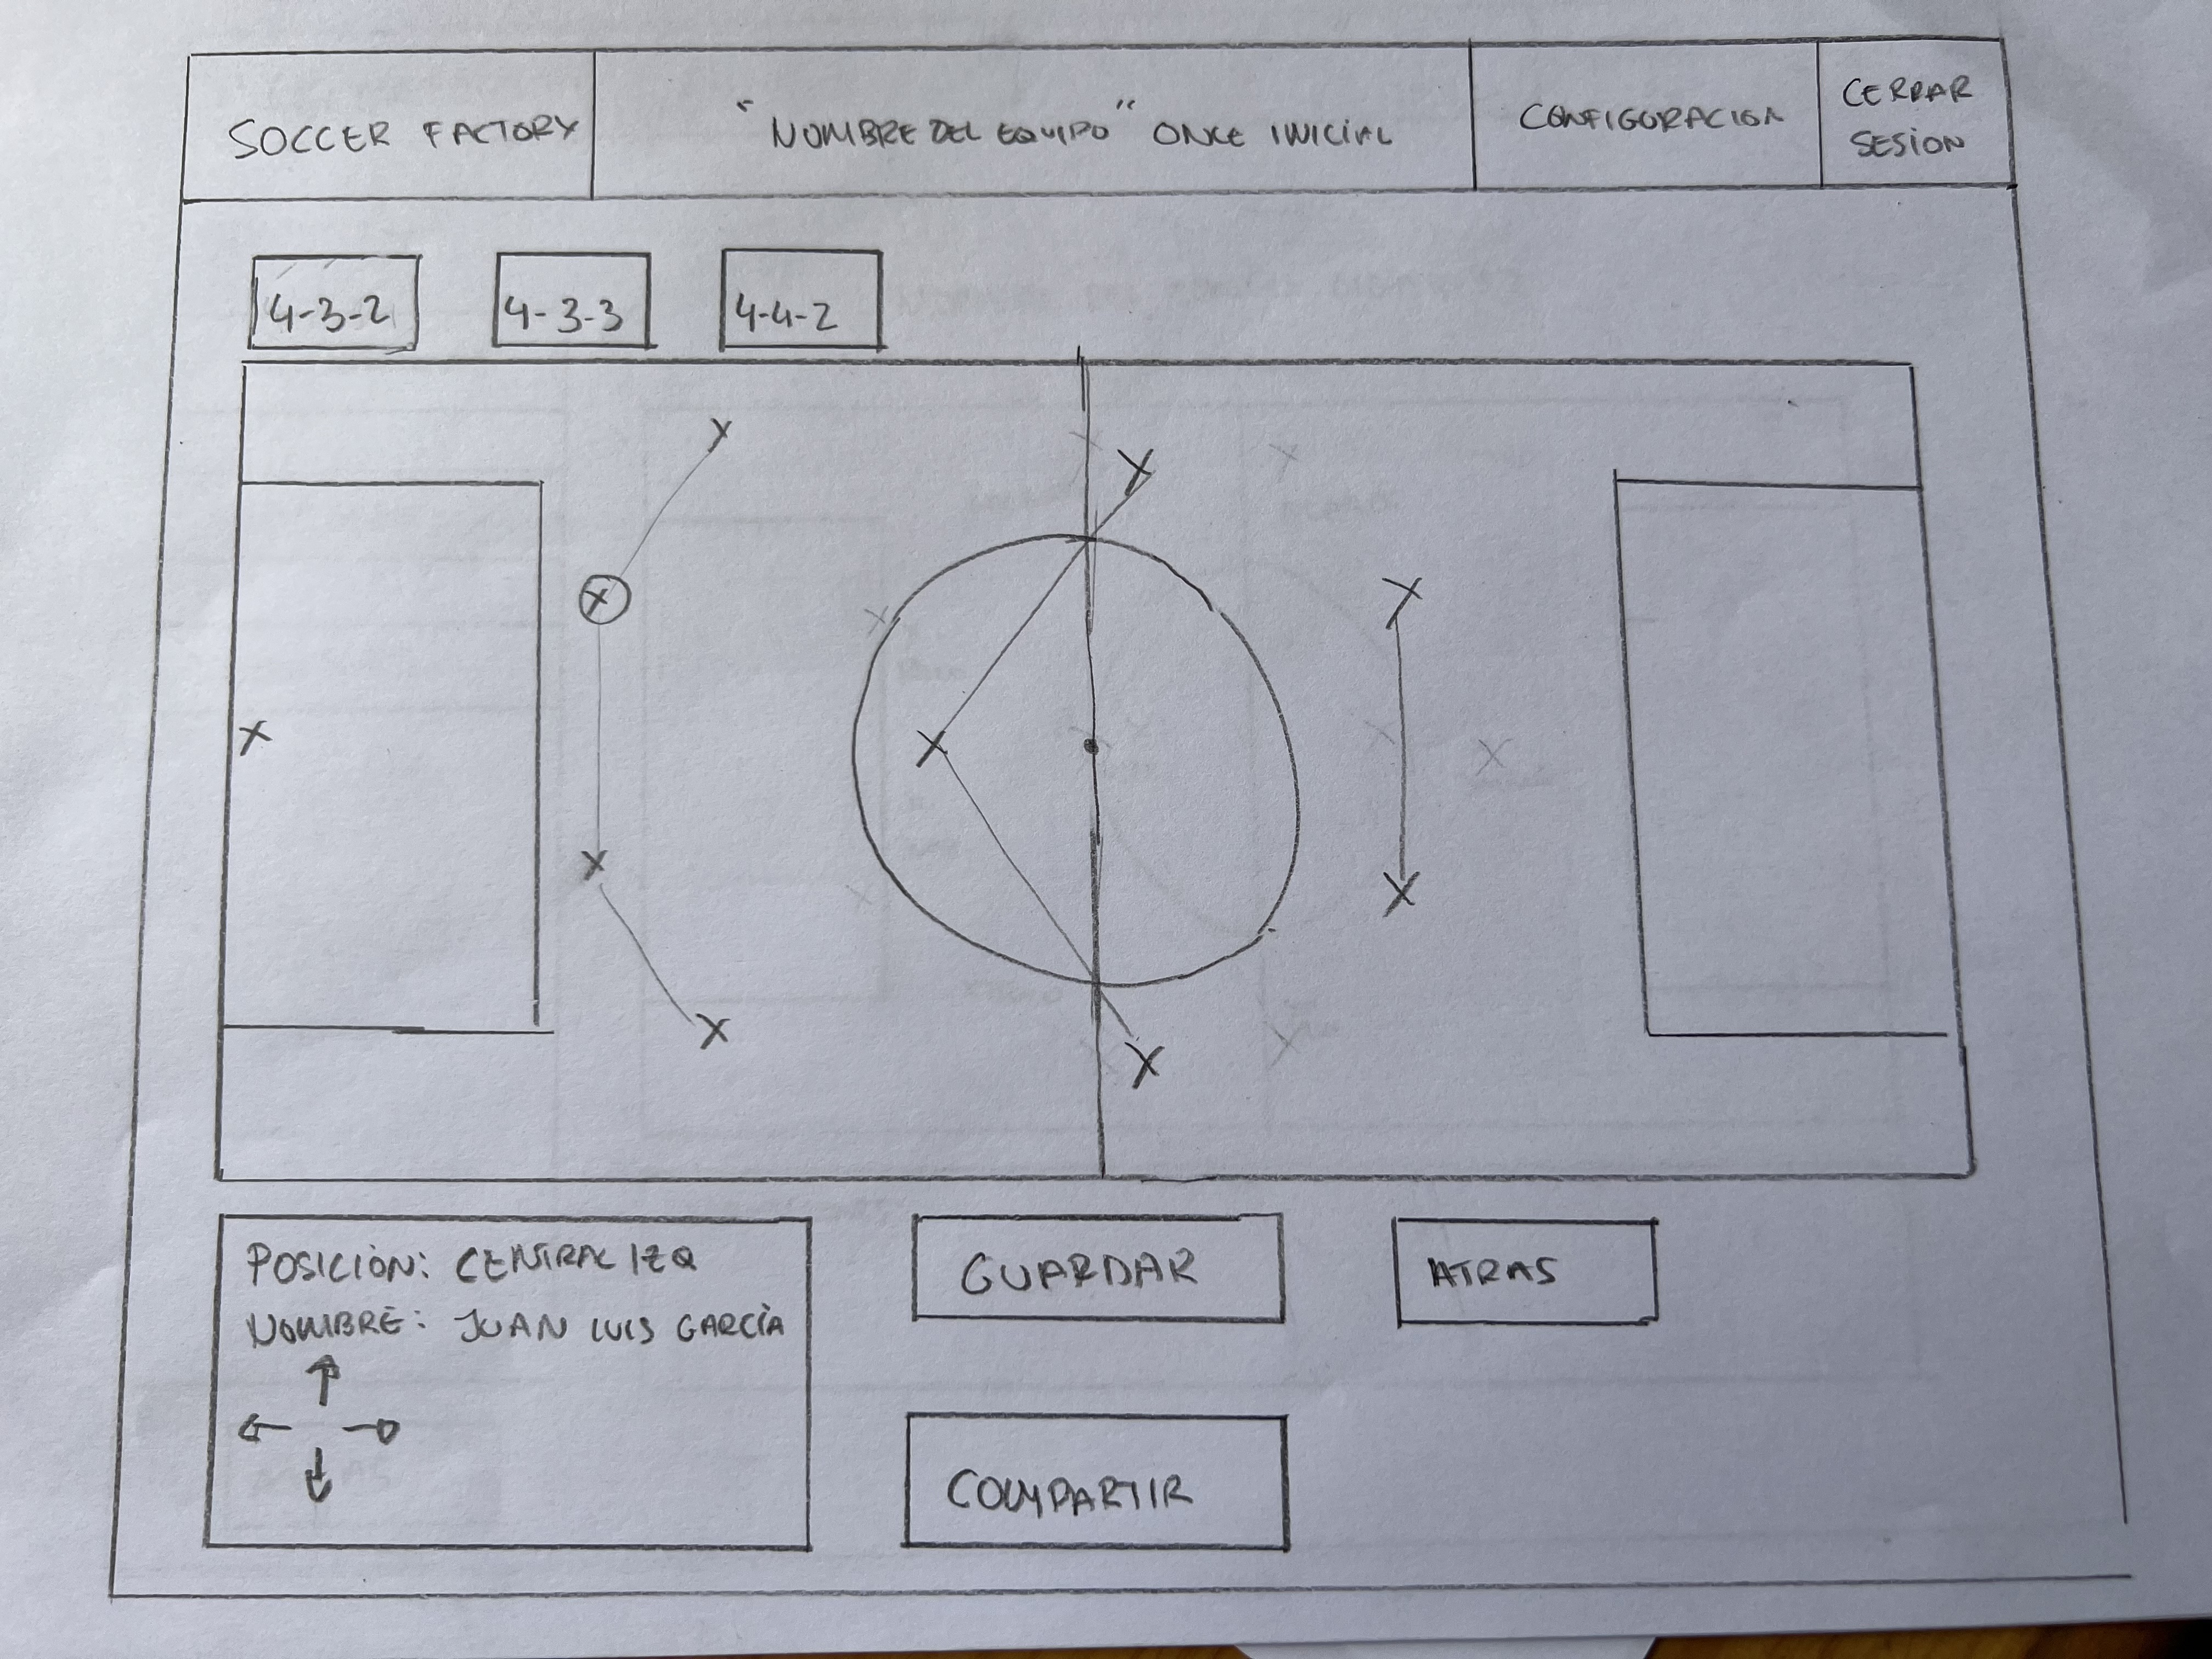 SOCCER FACTORY
"NOMBRE DEL EQUIPO" ONCE INICIAL
CONFIGURACION
CERRAR
SESION
4-3-2
4-3-3
4-4-2
POSICIÓN: CENTRAL IZQ
NOMBRE: JUAN LUIS GARCÍA
GUARDAR
ATRAS
COMPARTIR